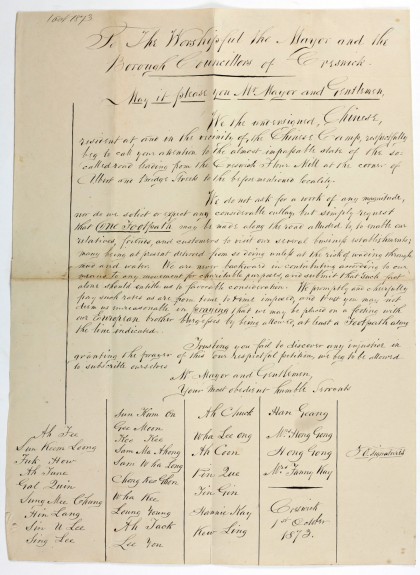 1 Oct 1873
To The Worshipful the Mayor and the
Borough Councillors of Creswick.
May it please you Mr Mayor and Gentlemen,
We the undersigned, Chinese,
resident at, and in the vicinity of, the Chinese Camp, respectfully
beg to call your attention to the almost impassable state of the so-
called road leading from the Creswick Flour Mill at the corner of
Albert and Bridge Streets to the before mentioned locality.
We do not ask for a work of any magnitude,
nor do we solicit or expect any considerable outlay, but simply request
that One Footpath may be made along the road alluded to, to enable our
relatives, friends, and customers to visit our several business establishments,
many being at present deterred from so doing unless at the risk of wading through
mud and water. We are never backward in contributing according to our
means to any movement for charitable purposes, and submit that such
alone should entitle us to favorable consideration. We promptly and cheerfully
pay such rates as are from time to time imposed, and thus you may not
deem us unreasonable in praying that we may be placed on a footing with
our European brother Burgesses by being allowed, at least a Footpath along
the line indicated.
Trusting you fail to discover any injustice in
granting the prayer of this our respectful petition, we beg to be allowed
to subscribe ourselves
Mr Mayor and Gentlemen,
Your most obedient humble Servants
Ah Fee
Sun Kwem Loong
Fuk How
Ah June
Gal Quin
Sung Mee Chung
Hin Lang
Sin U Lee
Sing Lee
Sun Kum On
Gee Moon
Kee Kee
Sam Ma Shong
Sam Wha Long
Chong Koo Ghen
Wha Kee
Loung Young
Ah Jack
Lee Yon
Ah Chuck
Wha Lee on
Ah Coon
Fin Que
Tin Gin
Nannie Hay
Kow Ling
Han Geang
Mrs Hong Gong
Hong Gong
Mrs Fanny Hay
Creswick
1st October
1873.
Signatures